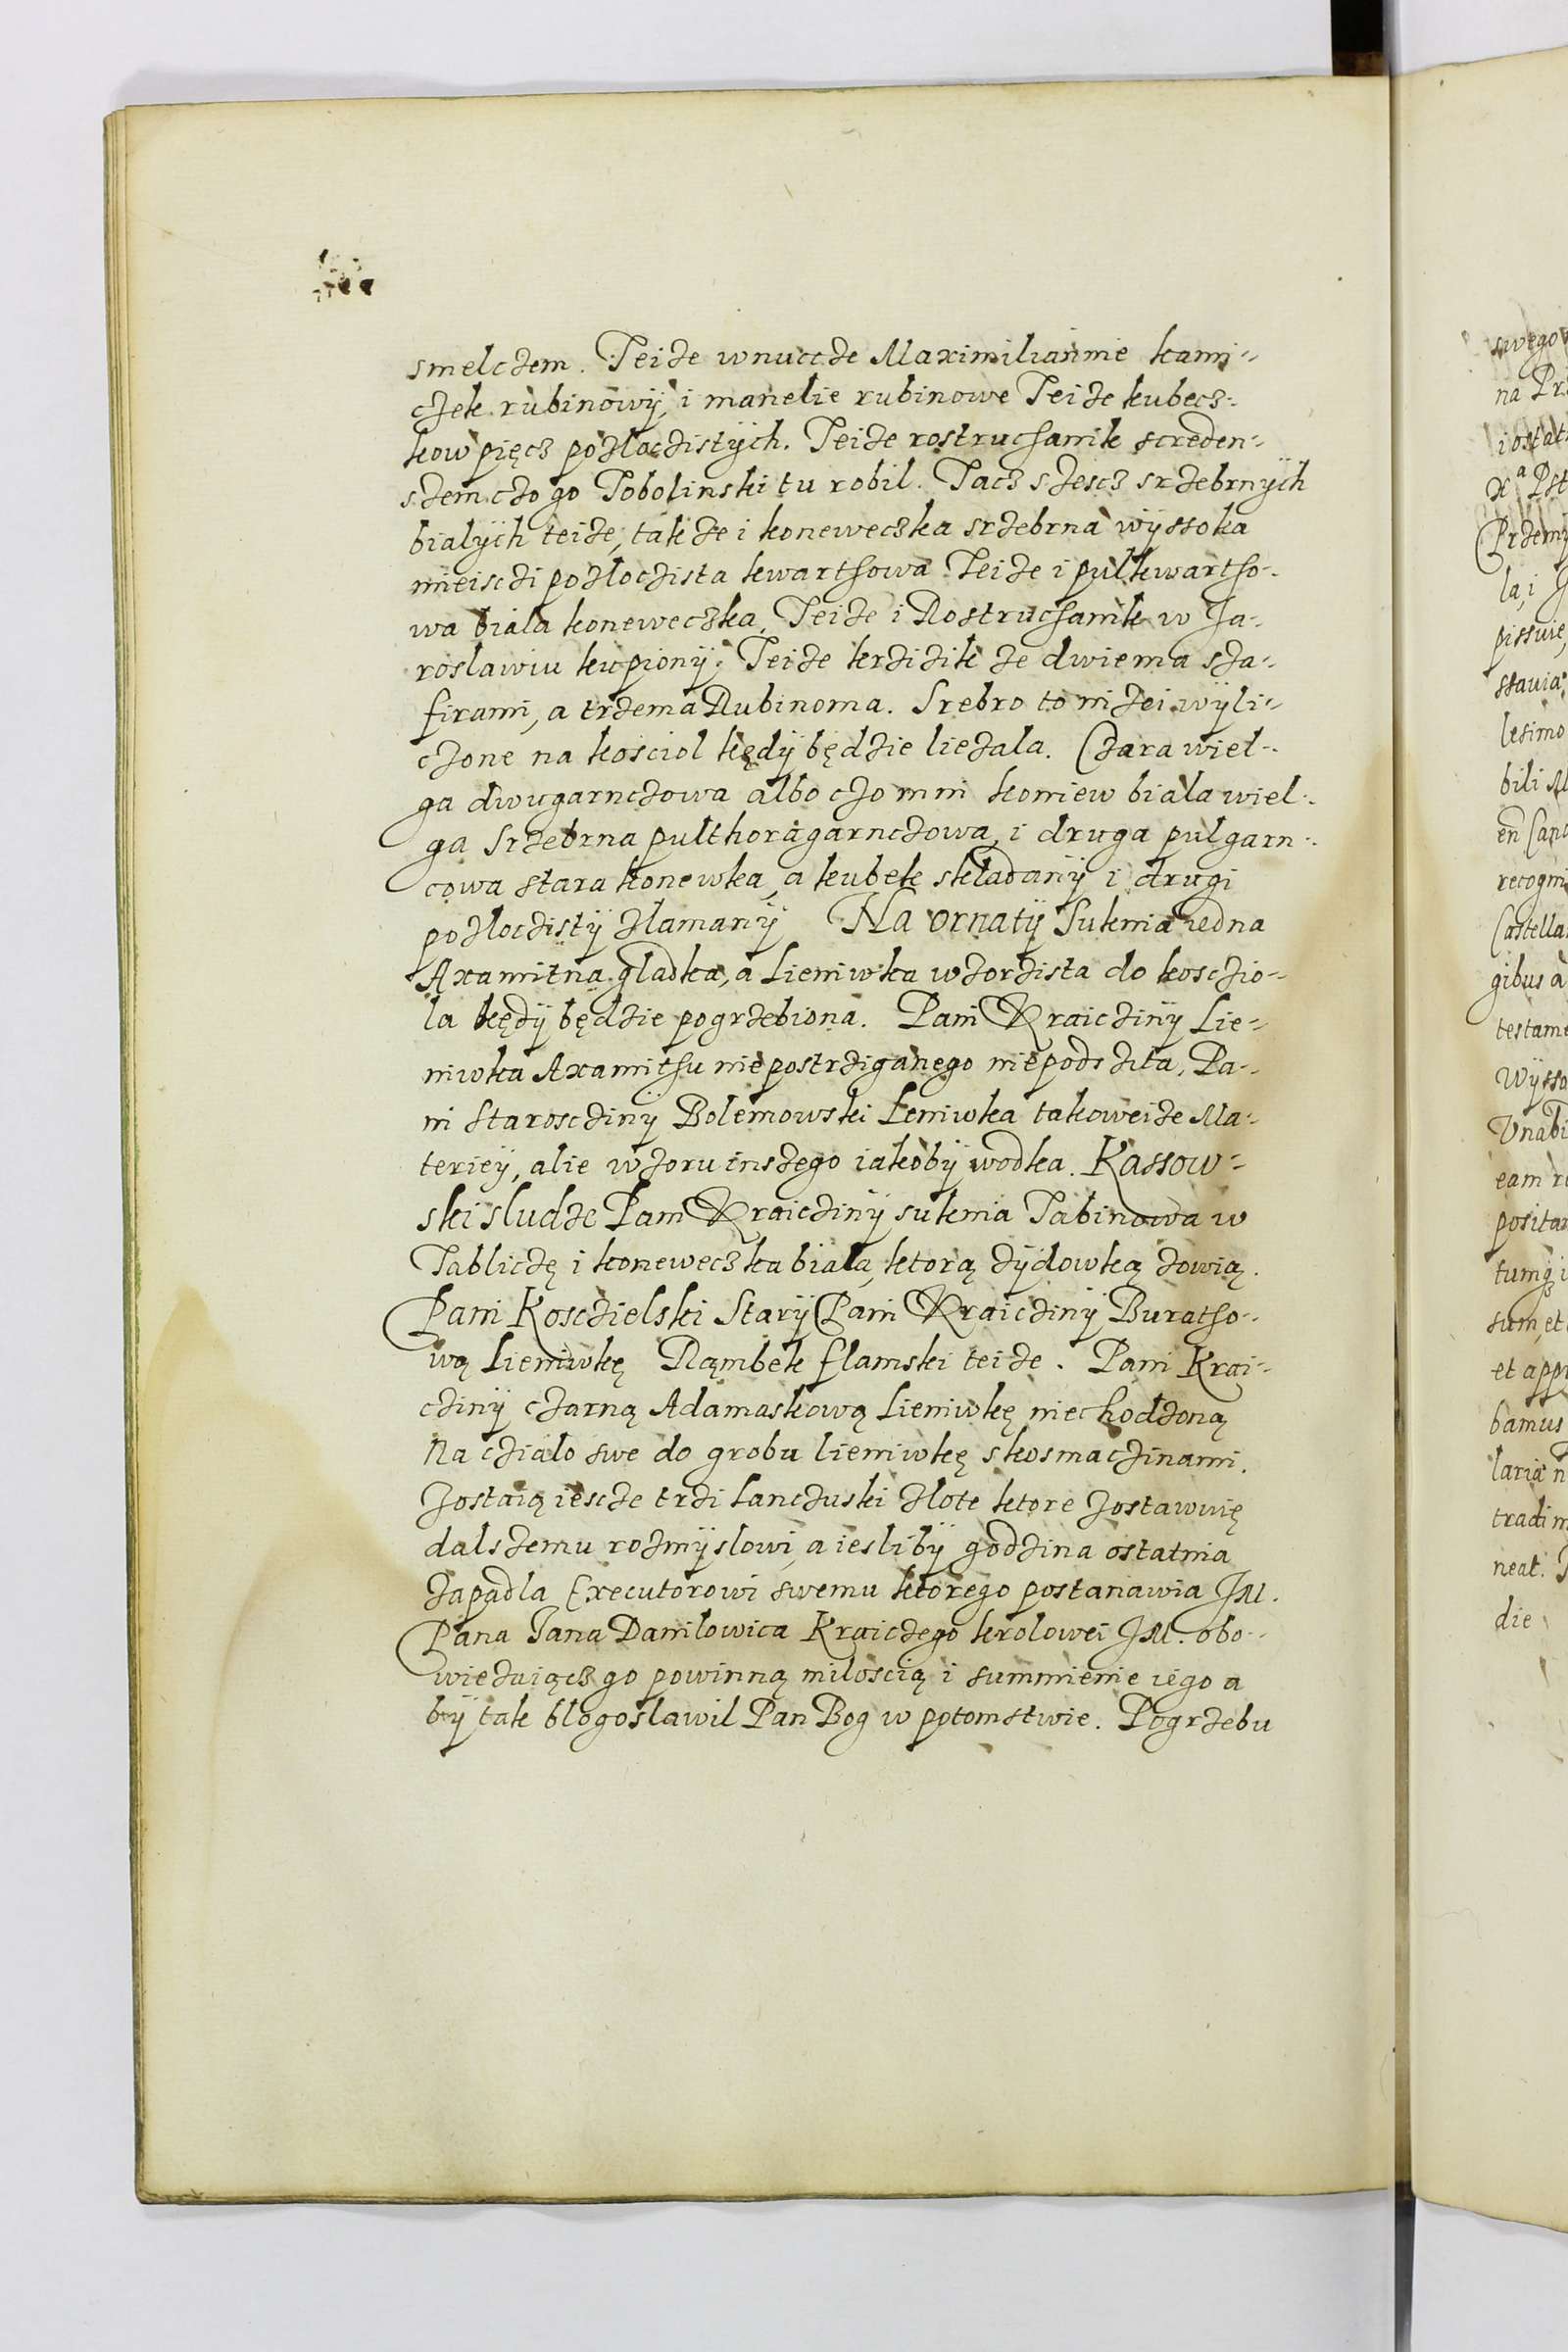 smelczem. Teize wnucze Maximiliannie kami-
czek rubinowÿ, i manelie rubinowe Teize kubecz-
kow pięcz pozlocistÿch. Teize rostruchanik screden-
szem czo go Tobolinski tu robil. Tacz szescz srzebrnÿch
bialÿch teize, takze i koneweczka srzebrna wÿssoka
mieisczi pozloczista kwarthowa Teize i pulkwartho-
wa biala koneweczka, Teize i Rostruchanik w Ja-
roslawiu kupionÿ. Teize krzizik ze dwiema sza-
firami, a trzema Rubinoma. Srebro to nizei wÿli-
czone na kosciol kędÿ będzie liezala. Czara wiel-
ga dwugarnczowa albo czo mni koniew biala wiel-
ga Srzebrna pulthoragarnczowa, i druga pulgarn-
cowa stara konewka, a kubek skladanÿ i drugi
pozloczistÿ zlamanÿ Na ornatÿ Suknia iedna
Axamitna gladka, a Lieniwka wzorzista do kosczio-
la kędÿ będzie pogrzebiona. Pani Kraiczinÿ Lie-
niwka Axamithu niepostrziganego niepodszita, Pa-
ni Starosczinÿ Bolemowski Leniwka takoweize Ma-
teriey, alie wzoru inszego iakobÿ wodka. Kassow-
ski sludze Pani Kraiczinÿ suknia Tabinowa w
Tabliczę i koneweczka biala, ktorą zÿdowką zowią.
Pani Kosczielski Starÿ Pani Kraiczinÿ Buratho-
wą Lieniwkę Rąmbek flamski teize. Pani Krai-
czinÿ czarną Adamaskową Lieniwkę niechodzoną
Na czialo swe do grobu lieniwkę skosmaczinami.
Zostaią iescze trzi Lanczuski zlote ktore zostawuię
dalszemu rozmÿslowi, a ieslibÿ godzina ostatnia
zapadla Executorowi swemu ktorego postanawia JM.
Pana Jana Danilowica Kraiczego krolowei JM. obo-
wiezuiącz go powinną miloscią i summienie iego a
bÿ tak blogoslawil Pan Bog w potomstwie. Pogrzebu
swego
na
iostat
la, i
pissuie,
stavia
lesimo
bili
recogni
Castella
gibus a
testame
Wÿsso
eam
posita
sum, et
et app
bamus
laria n
tradi
neat.
die